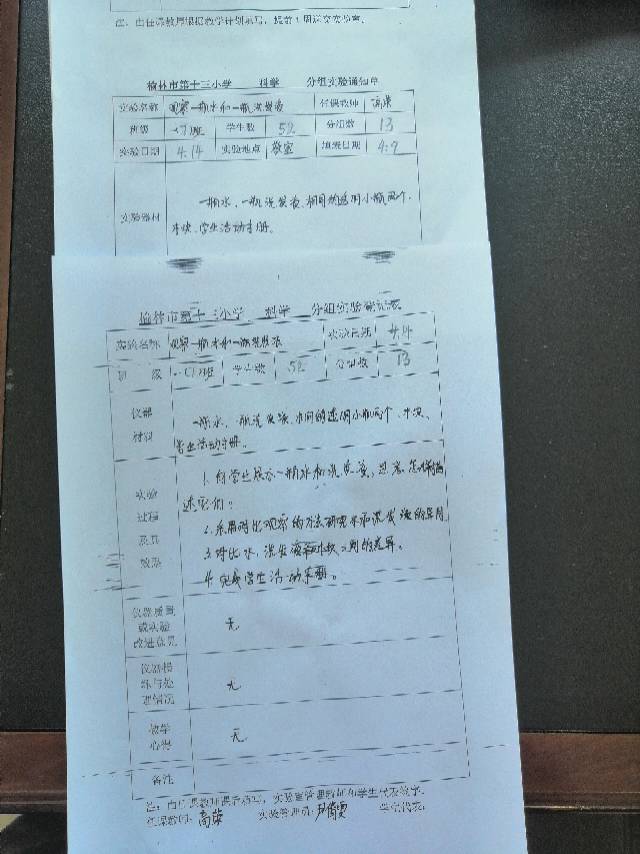 注：由任课教师根据教学计划填写，提前1周送交实验室。
榆林市第十三小学 科学 分组实验通知单
实验名称 观察一瓶水和一瓶洗发液 任课教师 高荣
班级 一.7班 学生数 52 分组数 13
实验日期 4.14 实验地点 教室 填表日期 4.9
实验器材
一瓶水、一瓶洗发液、相同的透明小瓶两个、
木块、学生活动手册。
榆林市第十三小学 科学 分组实验登记表
实验名称 观察一瓶水和一瓶洗发液 实验日期 4.14
班 级 一.7班 学生数 52 分组数 13
仪器
材料
一瓶水、一瓶洗发液、相同的透明小瓶两个、木块、
学生活动手册。
实验
过程
及其
效果
1.向学生展示一瓶水和洗发液，思考怎样描
述它们？
2.采用对比观察的方法研究水和洗发液的异同
3.对比水、洗发液和木块之间的差异。
4.完成学生活动手册。
仪器质量
或实验
改进意见
无
仪器损
坏与处
理情况
无
教学
心得
无
备注
注：由任课教师课后填写，实验室管理教师和学生代表签字。
任课教师：高荣 实验管理员： 学生代表：